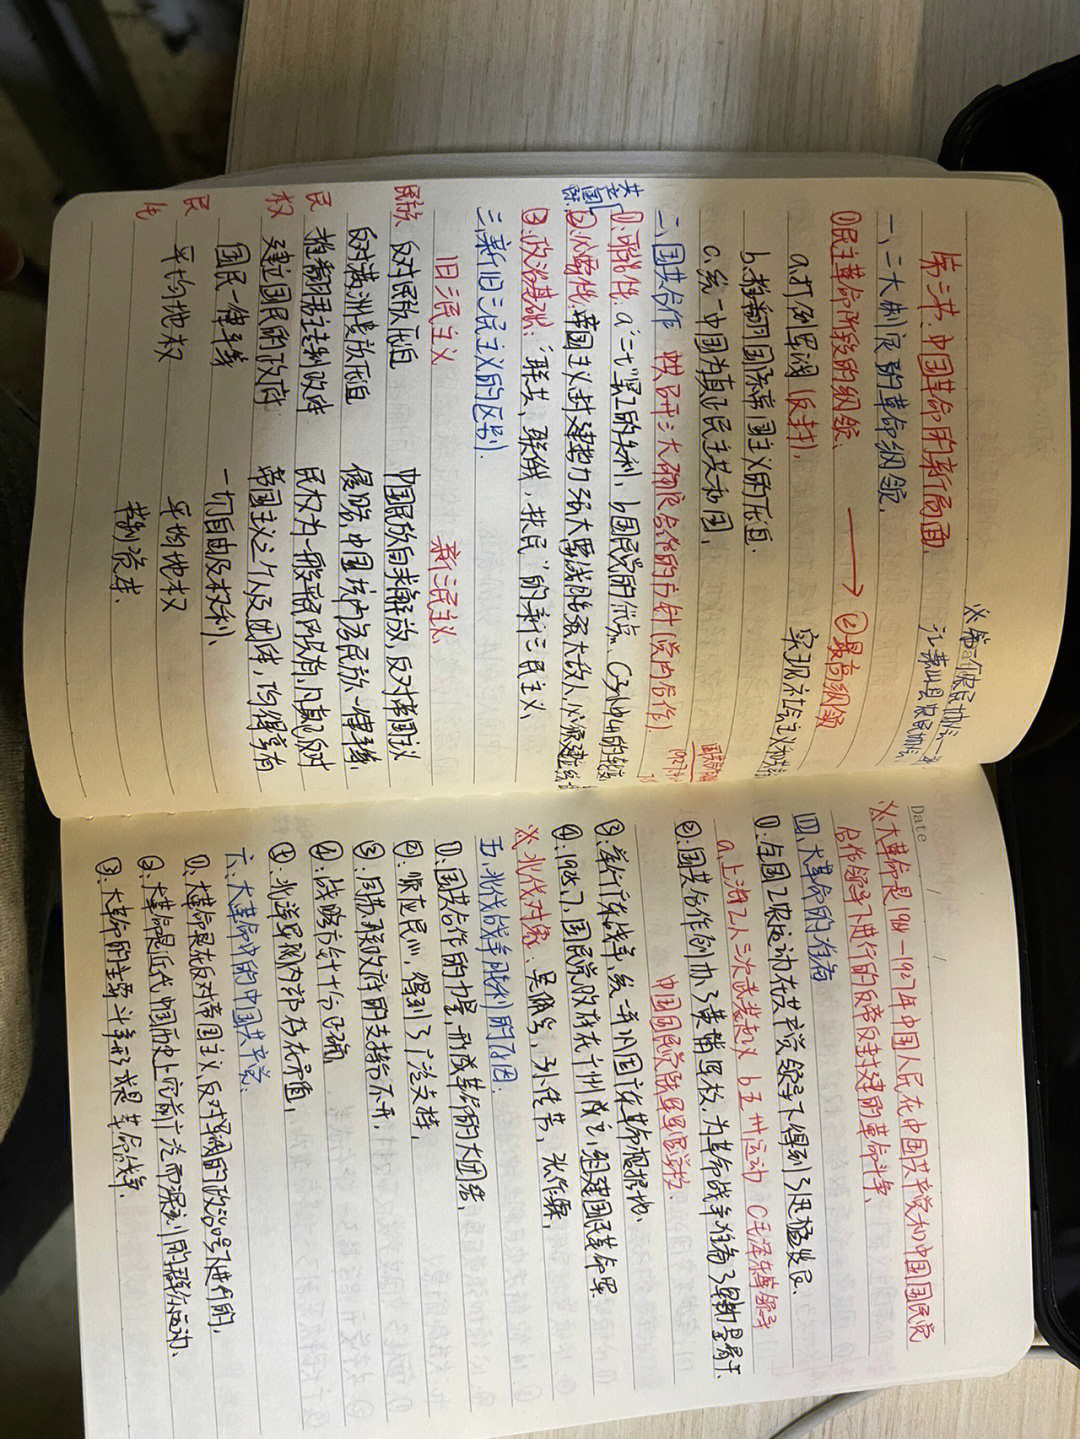 第三节:中国革命的新局面.
※第一个农民协会——
一、二大制定的革命纲领.
①民主革命阶段的纲领: → ②最高纲领
a.打倒军阀(反封). 实现社会主义和共产
b.推翻国际帝国主义的压迫.
c.统一中国为真正民主共和国.
二、国共合作 中共三大确定合作的方针(党内合作).
①.可能性: a"二七"罢工的失利. b国民党的优点. C孙中山的转变
②必要性:帝国主义封建势力强大要战胜强大敌人,必须建立统
③.政治基础:"联共,联俄,扶农"的新三民主义.
三、新旧三民主义的区别.
旧三民主义 新三民主义
民族 反对民族压迫 中国民族自求解放,反对帝国主义
反对满洲贵族压迫 侵略,中国境内各民族一律平等.
民权 推翻君主专制政体 民权为一般平民所共有,凡真正反对
建立国民的政府 帝国主义之个人及团体,均得享有
国民一律平等 一切自由及权利.
民生 平均地权 平均地权
节制资本.
Date / /
※大革命是1924—1927年中国人民在中国共产党和中国国民党
合作领导下进行的反帝反封建的革命斗争.
四.大革命的准备
①.全国工农运动在共产党领导下得到了迅猛发展.
a.上海工人三次武装起义 b五卅运动 C毛泽东领导
②.国共合作创办了黄埔军校.为革命战争准备了军事力量骨干.
中国国民党陆军军官学校.
③.举行东征战争,统一巩固广东革命根据地.
④.1925.7.国民党政府在广州成立,组建国民革命军.
※.北伐对象: 吴佩孚,孙传芳,张作霖.
五.北伐战争胜利的原因:
①.国共合作的力量,形成革命的大团结.
②.顺应民心,得到了广泛支持.
③.同苏联政府的支持分不开.
④.战略方针十分正确
④.北洋军阀内部存在矛盾.
六、大革命中的中国共产党:
①.大革命是在反对帝国主义,反对军阀的政治口号下进行的.
②.大革命是近代中国历史上空前广泛而深刻的群众运动.
③.大革命的主要斗争形式是革命战争.